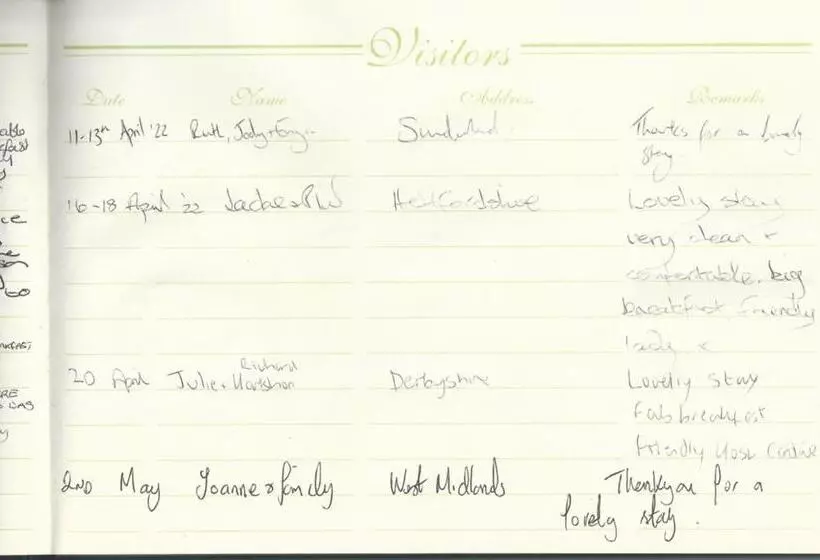 Visitors
Date Name Address Remarks
11-13th April '22 Ruth, Jody + Sunderland Thanks for a lovely
stay
16-18 April '22 Jackie + Hertfordshire Lovely stay
very clean +
comfortable, big
breakfast, friendly
lady x
Richard
20 April Julie + Derbyshire Lovely stay
Fab breakfast
Friendly Host
2ND May Joanne & family West Midlands Thankyou for a
lovely stay.